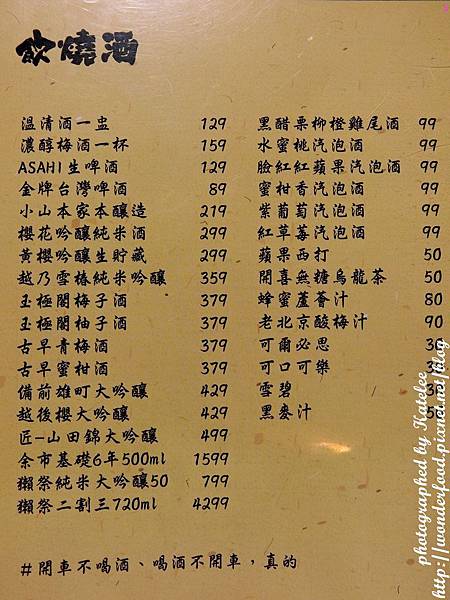 飲燒酒
溫清酒一盅 129
濃醇梅酒一杯 159
ASAHI生啤酒 129
金牌台灣啤酒 89
小山本家本釀造 219
櫻花吟釀純米酒 299
黃櫻吟釀生貯藏 299
越乃雪椿純米吟釀 359
玉極閣梅子酒 379
玉極閣柚子酒 379
古早青梅酒 379
古早蜜柑酒 379
備前雄町大吟釀 429
越後櫻大吟釀 429
匠-山田錦大吟釀 499
余市基礎6年500ml 1599
獺祭純米大吟釀50 799
獺祭二割三720ml 4299
黑醋栗柳橙雞尾酒 99
水蜜桃汽泡酒 99
臉紅紅蘋果汽泡酒 99
蜜柑香汽泡酒 99
紫葡萄汽泡酒 99
紅草莓汽泡酒 99
蘋果西打 50
開喜無糖烏龍茶 50
蜂蜜蘆薈汁 80
老北京酸梅汁 90
可爾必思
可口可樂
雪碧
黑麥汁
#開車不喝酒、喝酒不開車，真的
photographed by Katelee
http://wonderfood.pixnet.net/blog